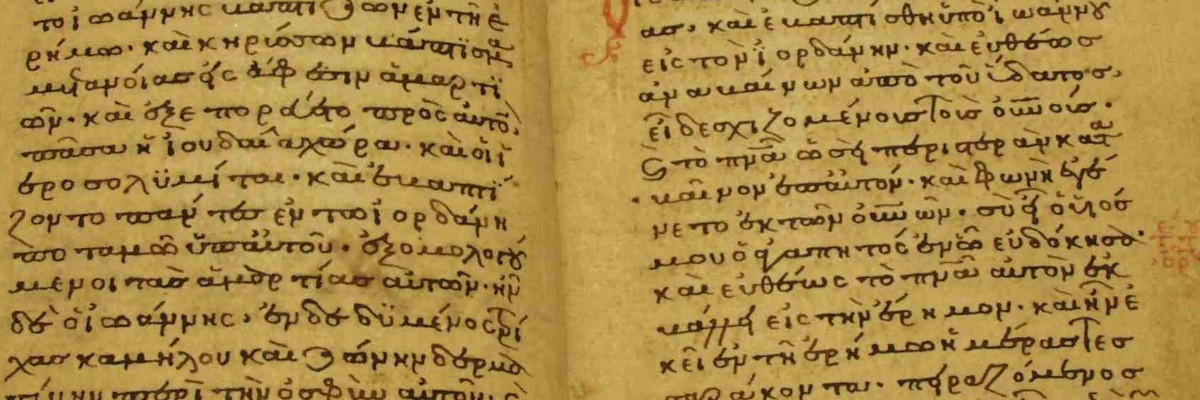 το ἰωάννης βαπτίζων ἐν τῆ ἐ
ρήμω· καὶ κηρύσσων βάπτισμα
μετανοίας εἰς ἄφεσιν ἁμαρτι
ῶν· καὶ ἐξεπορεύετο πρὸς αὐτὸν
πᾶσα ἡ ϊουδαία χώρα· καὶ οἱ ϊ
εροσολυμίται· καὶ ἐβαπτί
ζοντο πάντες ἐν τῶ ϊορδάνη
ποταμῶ ὑπ αὐτοῦ· ἐξομολογού
μενοι τὰς ἁμαρτίας αὐτῶν· ἦν
δὲ ὁ ϊωάννης· ἐνδεδυμένος τρί
χας καμήλου καὶ ζώνην δερμα
τίνην περὶ τὴν ὀσφὺν αὐτοῦ
ας· καὶ ἐβαπτίσθη ὑπὸ ϊωάννου
εἰς τὸν ϊορδάνην· καὶ εὐθέως
ἀναβαίνων ἀπὸ τοῦ ὕδατος·
εἶδε σχιζομένους τοὺς οὐνούς·
καὶ τὸ πνᾶ ὡσεὶ περιστερὰν κατα
βαῖνον ἐπ αὐτόν· καὶ φωνὴ ἐγέ
νετο ἐκ τῶν οὐνῶν· σὺ εἶ ὁ υἱός
μου ὁ ἀγαπητός ἐν ὧ εὐδόκησα·
καὶ εὐθέως τὸ πνᾶ αὐτὸν ἐκ
βάλλει εἰς τὴν ἔρημον· καὶ ἦν ἐ
κεῖ ἐν τῆ ἐρήμω ἡμέρας τεσ
σαράκοντα· πειραζόμενος